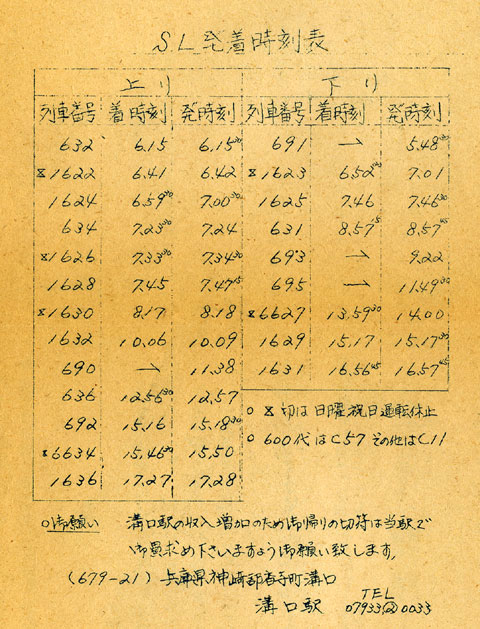 SL発着時刻表
上り 下り
列車番号 着時刻 発時刻 列車番号 着時刻 発時刻
632 6.15 6.15³⁰ 691 → 5.48³⁰
⧖1622 6.41 6.42 ⧖1623 6.52⁴⁵ 7.01
1624 6.59³⁰ 7.00³⁰ 1625 7.46 7.46³⁰
634 7.23³⁰ 7.24 631 8.57¹⁵ 8.57⁴⁵
⧖1626 7.33³⁰ 7.34³⁰ 693 → 9.22
1628 7.45 7.47¹⁵ 695 → 11.49³⁰
⧖1630 8.17 8.18 ⧖6627 13.59³⁰ 14.00
1632 10.06 10.09 1629 15.17 15.17³⁰
690 → 11.38 1631 16.56⁴⁵ 16.57⁴⁵
636 12.56³⁰ 12.57
692 15.16 15.18³⁰
⧖6634 15.46³⁰ 15.50
1636 17.27 17.28
○ ⧖切は日曜祝日運転休止
○ 600代はC57その他はC11
○御願い 溝口駅の収入増加のため御帰りの切符は当駅で
御買求め下さいますよう御願い致します。
(679-21) 兵庫県神崎郡香寺町溝口
溝口駅 TEL 07933②0033